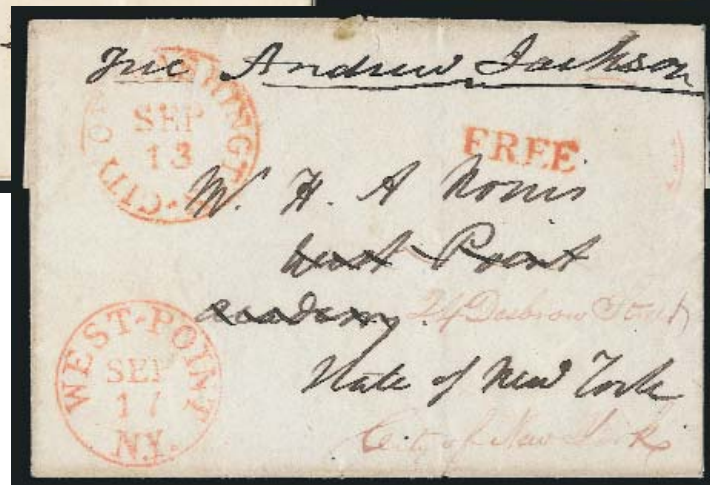 Free Andrew Jackson
CITY OF WASHINGTON
SEP
13
FREE
W. H. A Norris
West Point
academy. 24 Desbrow Street
State of New York
City of New York
WEST-POINT
SEP
17
N.Y.